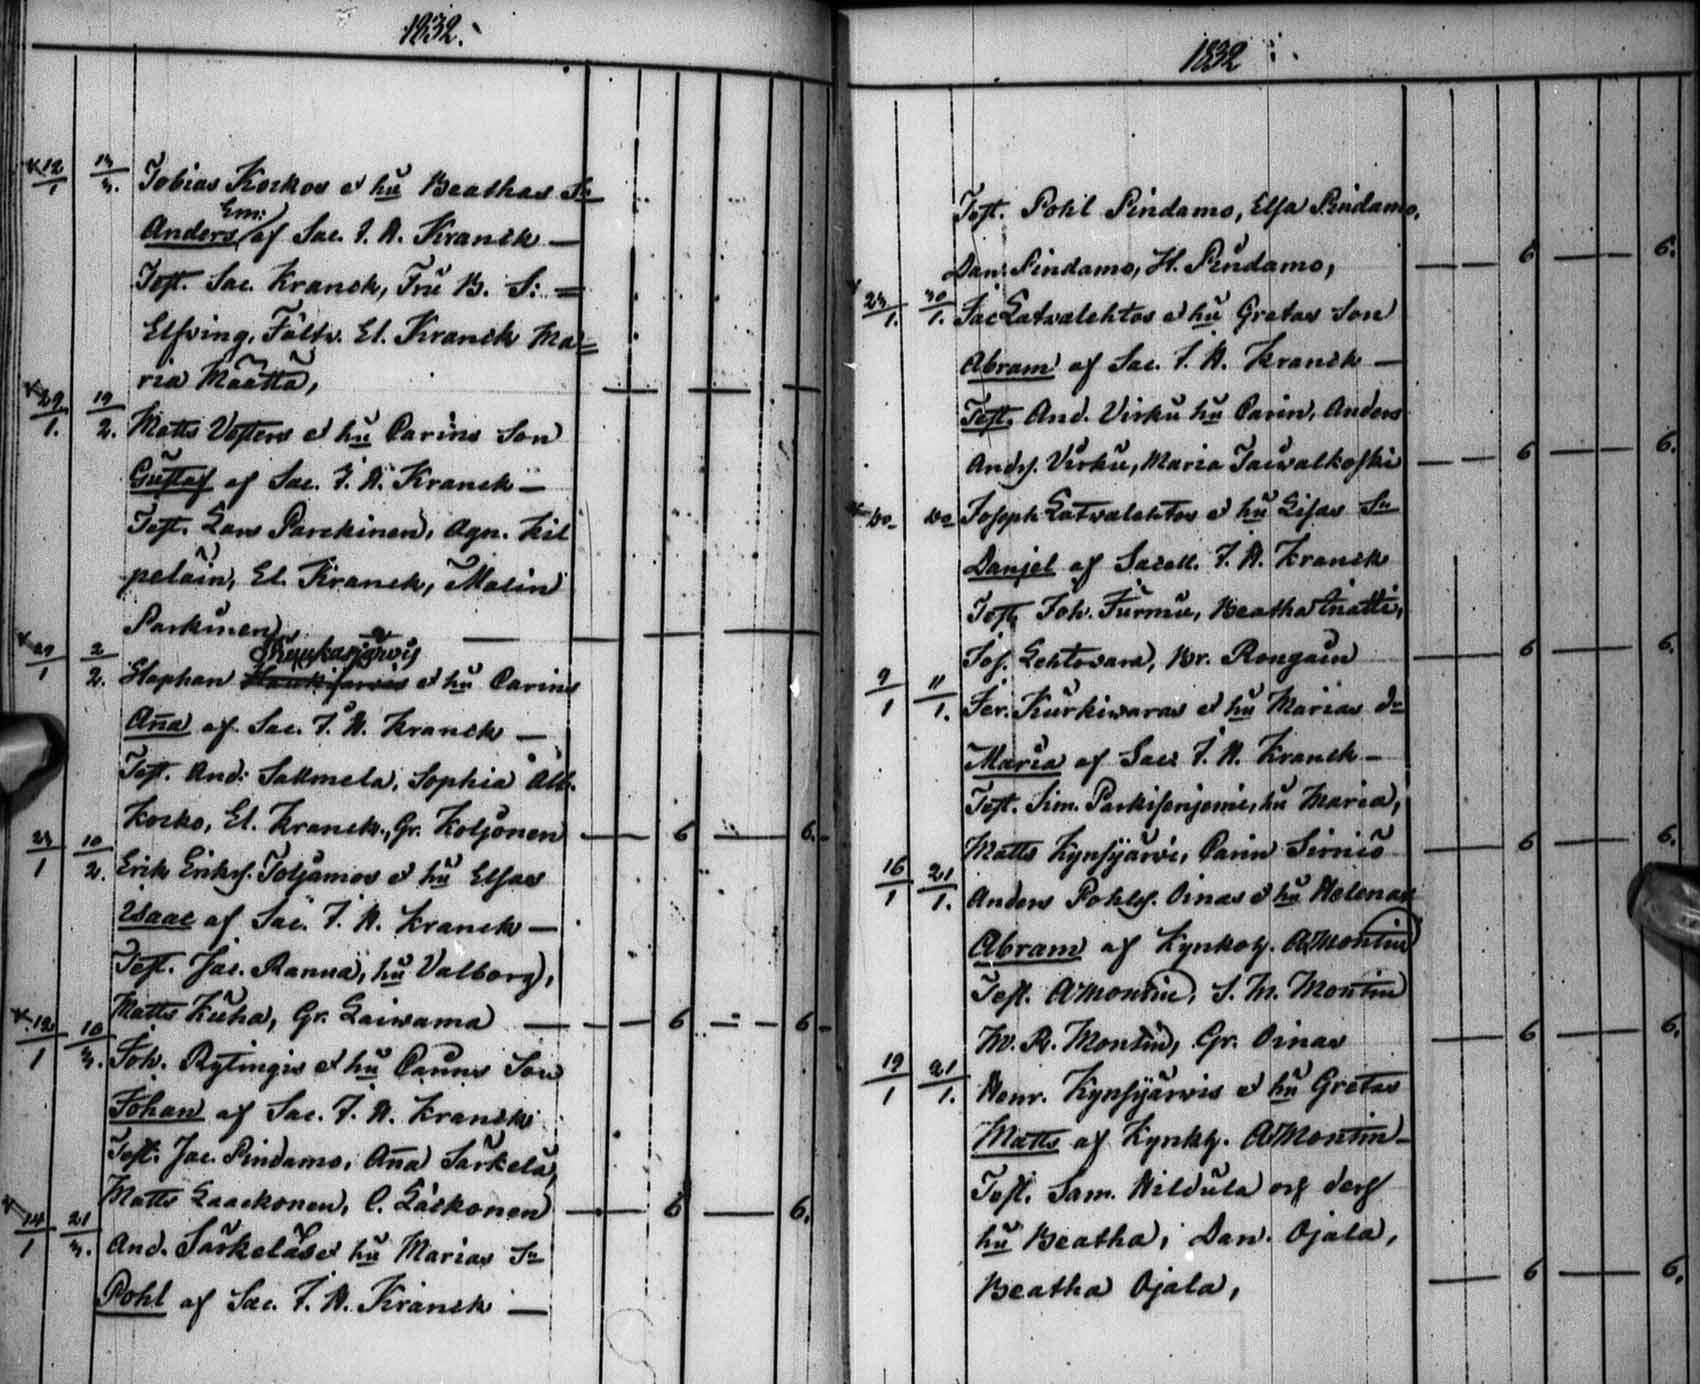 1832.
12/1 13/3. Tobias Korkos et hu Beathas Sn
Em:
Anders af Sac. J. A. Kranck —
Test. Sac. Kranck, Fru B. S: =
Elfving, Fältv. El. Kranck Ma=
ria Määttä,
29/1. 19/2. Matts Vesters et hu Carins Son
Gustaf af Sac. J. A. Kranck —
Test. Lars Parckinen, Agn. Kil
peläin, El. Kranck, Malin
Parkinen,
Haukijärwis
29/1 2/2. Stephan et hu Carins
Aña af Sac. J. A. Kranck —
Test. And: Salmela, Sophia Alb.
Korko, El. Kranck, Gr. Koljonen — 6 — 6.
23/1 10/2. Erik Eriks. Toljamos et hu Elsas
Isaac af Sac. J. A. Kranck —
Test. Jac. Ranua, hu Valborg,
Matts Kuha, Gr. Laiwama — 6 — 6
12/1 18/3. Joh. Rytingis et hu Carins Son
Johan af Sac. J. A. Kranck
Test. Jac. Pindamo, Aña Särkelä,
Matts Laackonen, C. Läckonen — 6 — 6.
14/1 21/3. And. Särkeläs et hu Marias Sn
Pohl af Sac. J. A. Kranck —
1832
Test. Pohl Pindamo, Elsa Pindamo,
Dan. Pindamo, H. Pindamo, — 6 — 6.
23/1. 30/1. Jac Latvalehtos et hu Gretas Son
Abram af Sac. J. A. Kranck —
Test. And. Virku hu Carin, Anders
Ands. Virku, Maria Taiwalkoski — 6 — 6.
do do Joseph Latvalehtos et hu Lisas Sn
Daniel af Sacell. J. A. Kranck
Test. Joh. Furmu, Beatha Inatti,
Jos. Lehtovara, Br. Rongain — 6 — 6.
9/1 11/1. Jer. Kurkiwaras et hu Marias dr
Maria af Sac. J. A. Kranck —
Test. Sim. Parkiseniemi, hu Maria,
Matts Kynsijärwi, Carin Sirniö — 6 — 6.
16/1 21/1. Anders Pohls. Oinas et hu Helenas
Abram af Kynkotz. A Montin
Test. A Montin, S. M. Montin
M. R. Montin, Gr. Oinas — 6 — 6.
19/1 21/1. Henr. Kynsijärwis et hu Gretas
Matts af Kynktz. A Montin —
Test. Sam. Hildula och dess
hu Beatha, Dan. Ojala,
Beatha Ojala, — 6 — 6.